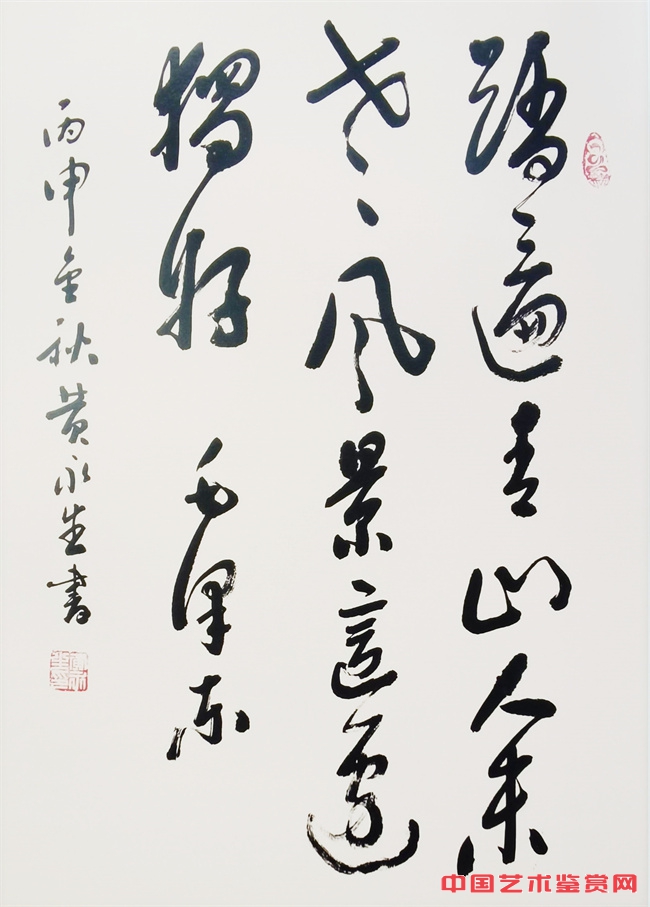 踏遍青山人未
老风景這邊
獨好 毛泽东
丙申金秋黄永生書
中国艺术鉴赏网